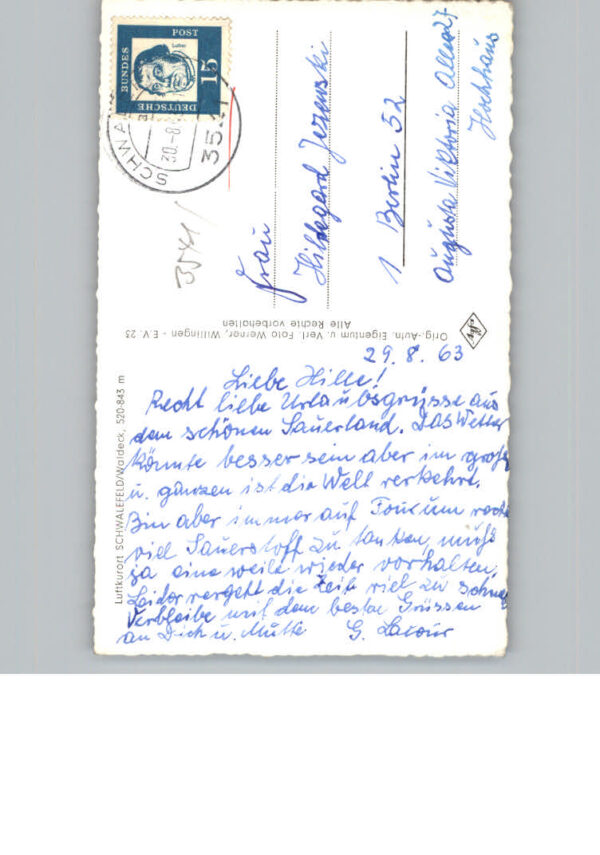 Luther
DEUTSCHE BUNDES POST
15
SCHWAL
30.-8
354
3541
Frau
Hildegard Jezewski
1 Berlin 52
Augusta Viktoria Allee 27
Hochhaus
Orig.-Aufn. Eigentum u. Verl. Foto Werner, Willingen - E.V. 23
Alle Rechte vorbehalten
Luftkurort SCHWALEFELD/Waldeck, 520-843 m
29. 8. 63
Liebe Hille!
Recht liebe Urlaubsgrüsse aus
dem schönen Sauerland. Das Wetter
könnte besser sein aber im großen
u. ganzen ist die Welt verkehrt.
Bin aber immer auf Tour um recht
viel Sauerstoff zu tanken, muß
ja eine weile wieder vorhalten.
Leider vergeht die Zeit viel zu schnell
Verbleibe mit den besten Grüssen
an Dich u. Mutti
G.